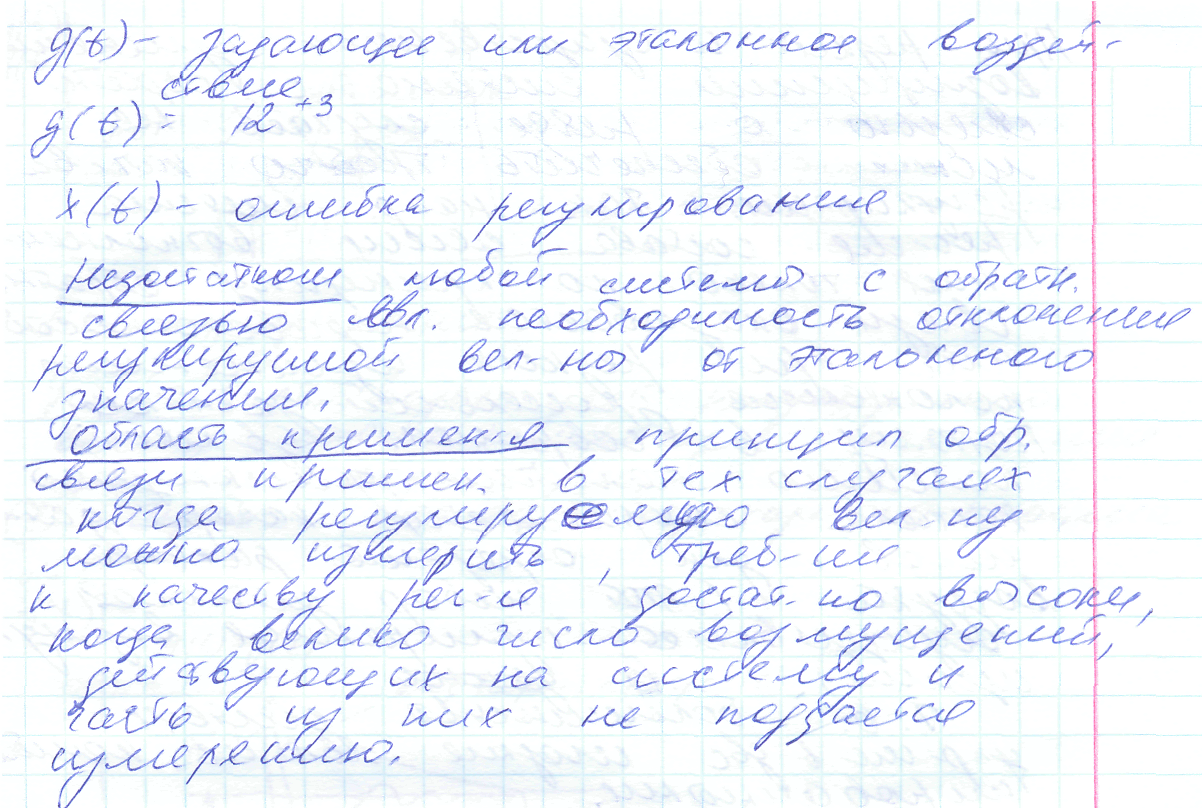 g(t) – задающее или эталонное воздей-
ствие
g(t) = 12⁺³
x(t) – ошибка регулирования
Недостатком любой системы с обратн.
связью явл. необходимость отклонения
регулируемой вел-ны от эталонного
значения.
область примен-я принцип обр.
связи примен. в тех случаях
когда регулируемую вел-ну
можно измерить, треб-ия
к качеству рег-я достат-но высоки,
когда велико число возмущений,
действующих на систему и
часть из них не поддается
измерению.